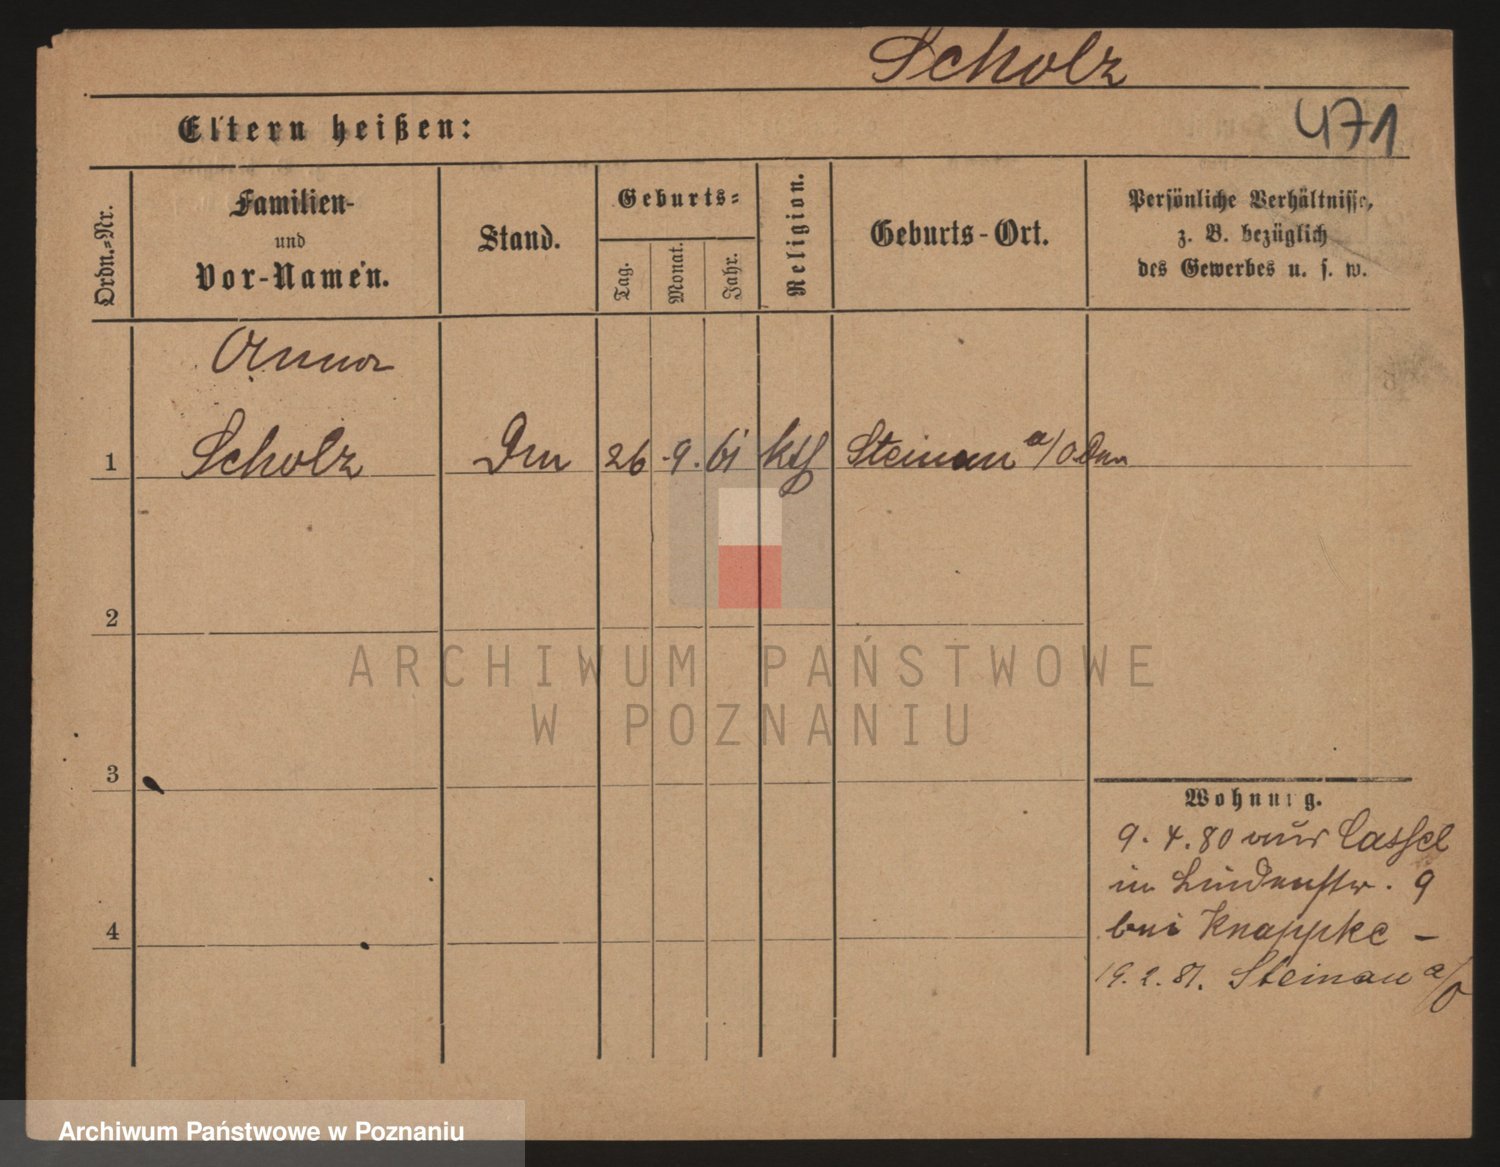 Scholz
471
Eltern heißen:
Ordn.=Nr.
Familien-
und
Vor-Namen.
Stand.
Geburts=
Tag.
Monat.
Jahr.
Religion.
Geburts-Ort.
Persönliche Verhältnisse,
z. B. bezüglich
des Gewerbes u. s. w.
Anna
1 Scholz 26 .9. 61 kth Steinau a/Oder
2
3
4
Wohnung.
9. 4. 80 aus Cassel
in Lindenstr. 9
bei Knappke –
19. 2. 81. Steinau a/O
ARCHIWUM PAŃSTWOWE
W POZNANIU
Archiwum Państwowe w Poznaniu